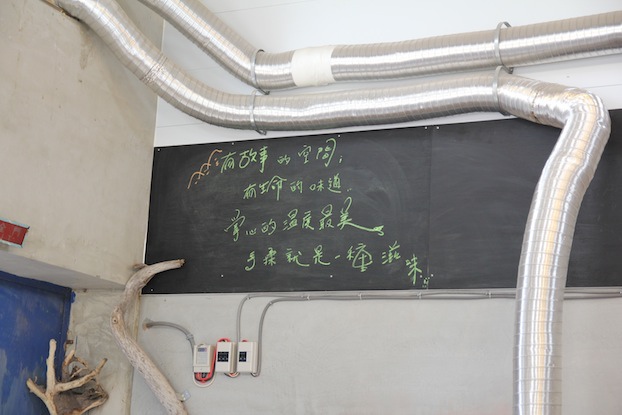 有故事的空間,
有生命的味道.
掌心的溫度最美
手柔就是一種滋味